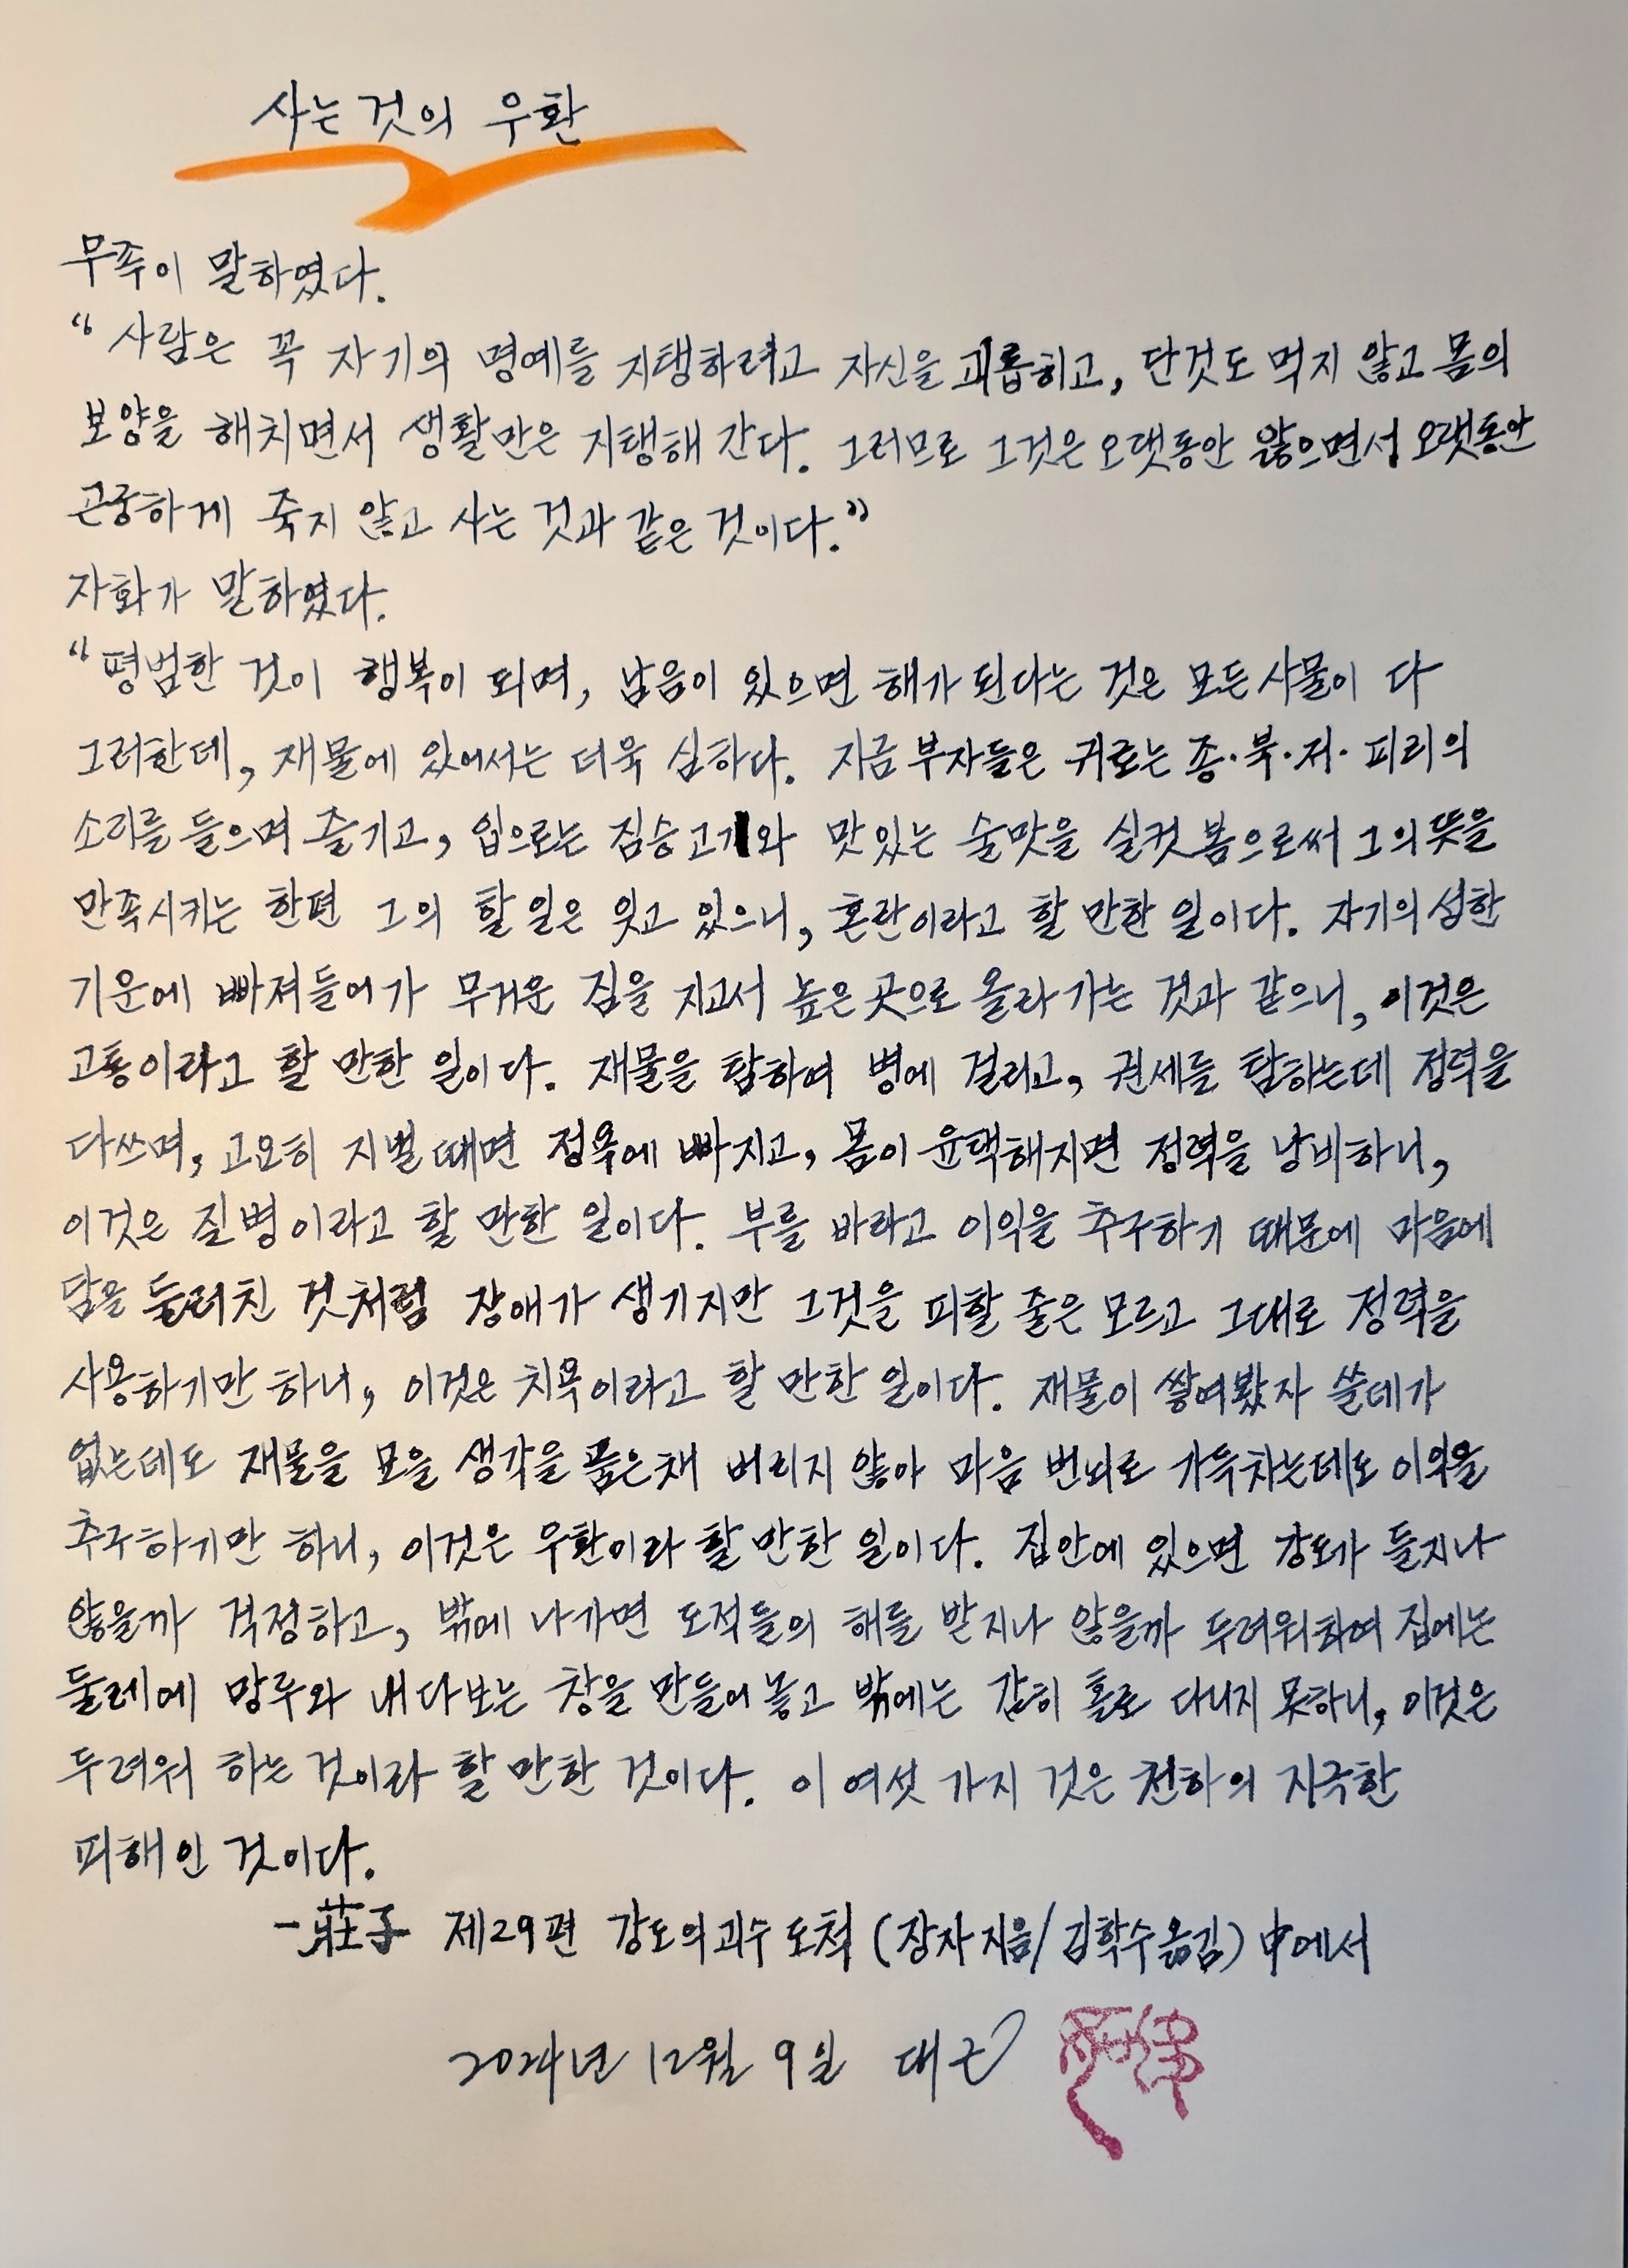 사는 것의 우환
무족이 말하였다.
“사람은 꼭 자기의 명예를 지탱하려고 자신을 괴롭히고, 단것도 먹지 않고 몸의
보양을 해치면서 생활만은 지탱해 간다. 그러므로 그것은 오랫동안 앓으면서 오랫동안
곤궁하게 죽지 않고 사는 것과 같은 것이다.”
자화가 말하였다.
“평범한 것이 행복이 되며, 남음이 있으면 해가 된다는 것은 모든 사물이 다
그러한데, 재물에 있어서는 더욱 심하다. 지금 부자들은 귀로는 종·북·저·피리의
소리를 들으며 즐기고, 입으로는 짐승고기와 맛있는 술맛을 실컷 봄으로써 그의 뜻을
만족시키는 한편 그의 할 일은 잊고 있으니, 혼란이라고 할 만한 일이다. 자기의 성한
기운에 빠져들어가 무거운 짐을 지고서 높은 곳으로 올라 가는 것과 같으니, 이것은
고통이라고 할 만한 일이다. 재물을 탐하여 병에 걸리고, 권세를 탐하는데 정력을
다쓰며, 고요히 지낼 때면 정욕에 빠지고, 몸이 윤택해지면 정력을 낭비하니,
이것은 질병이라고 할 만한 일이다. 부를 바라고 이익을 추구하기 때문에 마음에
담을 둘러친 것처럼 장애가 생기지만 그것을 피할 줄은 모르고 그대로 정력을
사용하기만 하니, 이것은 치욕이라고 할 만한 일이다. 재물이 쌓여봤자 쓸데가
없는데도 재물을 모을 생각을 품은채 버리지 않아 마음 번뇌로 가득차는데도 이익을
추구하기만 하니, 이것은 우환이라 할 만한 일이다. 집안에 있으면 강도가 들지나
않을까 걱정하고, 밖에 나가면 도적들의 해를 받지나 않을까 두려워하여 집에는
둘레에 망루와 내다보는 창을 만들어 놓고 밖에는 감히 홀로 다니지 못하니, 이것은
두려워 하는 것이라 할 만한 것이다. 이 여섯 가지 것은 천하의 지극한
피해인 것이다.
-莊子 제29편 강도의괴수 도척 (장자 지음/김학수 옮김) 中에서
2024년 12월 9일 대근